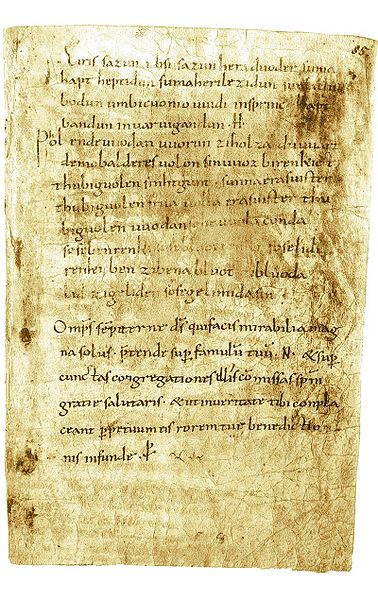 85
Eiris sazun idisi sazun hera duoder suma
hapt heptidun suma heri lezidun suma clu
bodun umbi cuonio uuidi insprinc hapt
bandun inuar uigandun ·H·
Phol ende uuodan uuorun zi holza du uuart
demo balderes uolon sin uuoz birenkict
thu biguolen sinhtgunt · sunna era suister
thu biguolen friia uolla era suister thu
biguolen uuodan so he uuola conda
sose benrenki sose bluotrenki sose lidi
renki ben zi bena bluot zi bluoda
lid zi geliden sose gelimida sin
Omps sempiterne ds qui facis mirabilia mag
na solus · ptende sup famulū tuū · N · & sup
cunctas congregationes illis cōmissas spm
gratie salutaris · & ut in ueritate tibi conpla
ceant ppetuum eis rorem tue benedictio
nis infunde ·